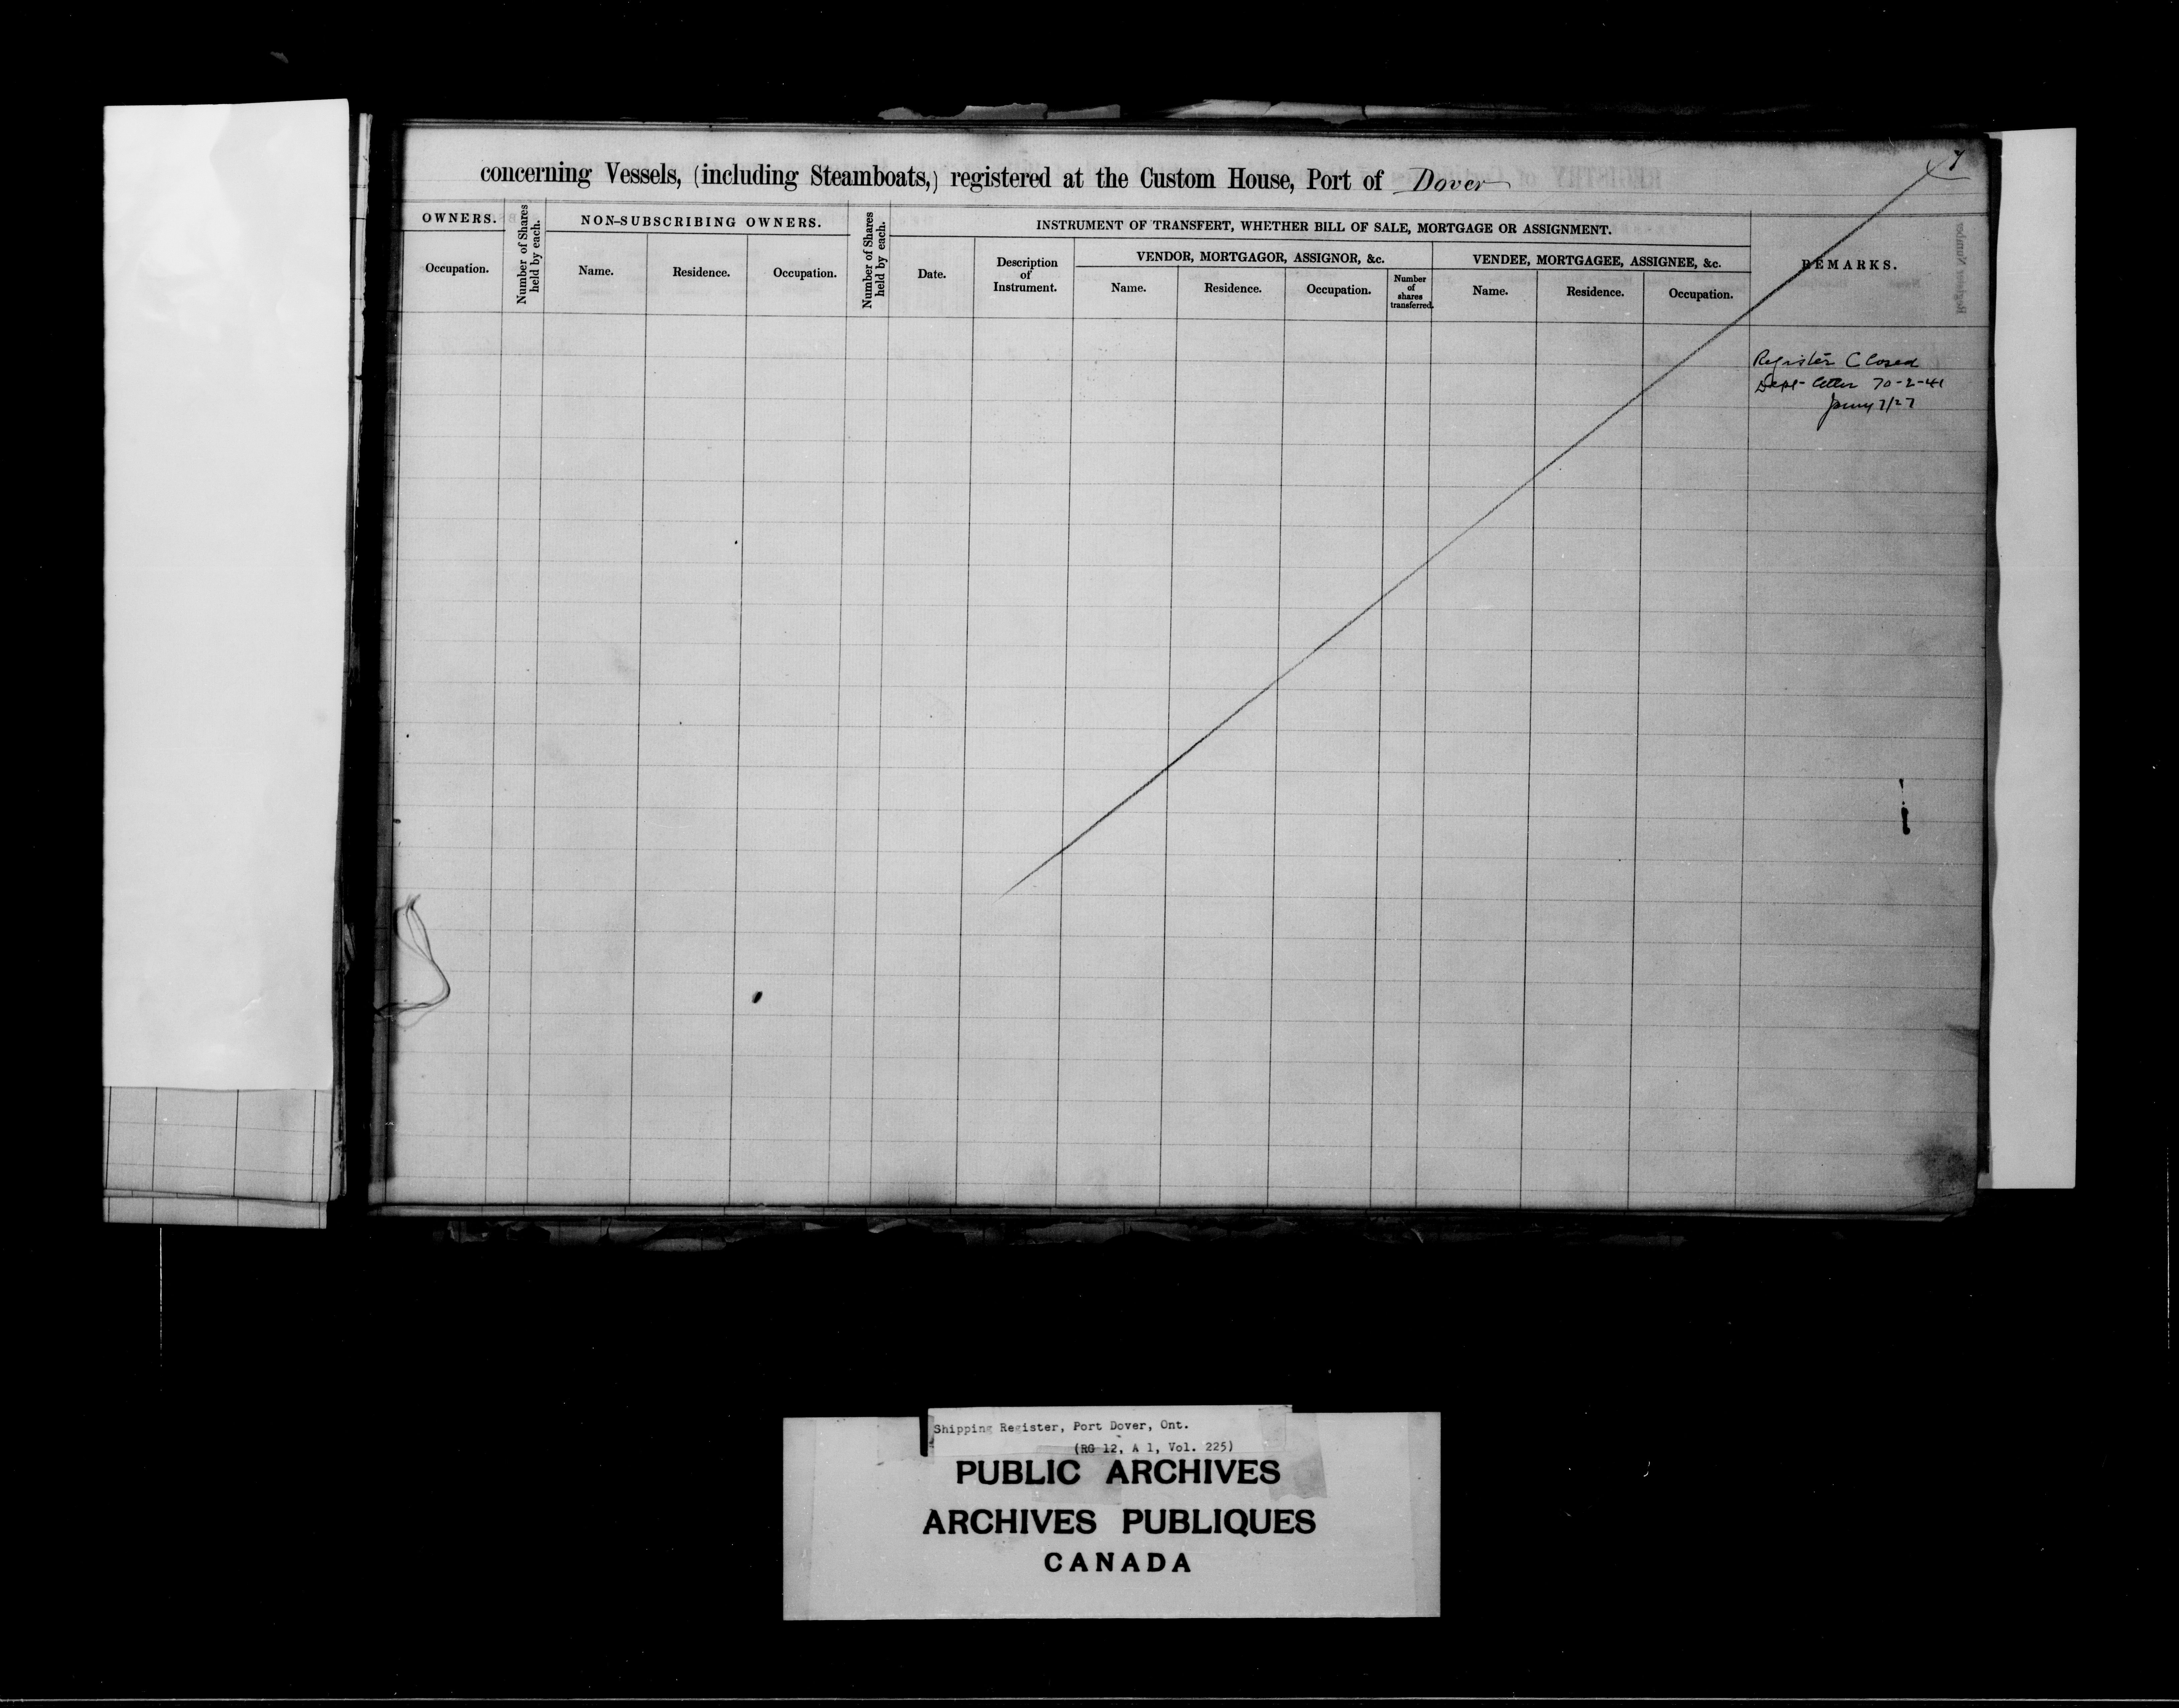 7
concerning Vessels, (including Steamboats,) registered at the Custom House, Port of Dover
OWNERS.
Occupation.
Number of Shares
held by each.
NON-SUBSCRIBING OWNERS.
Name.
Residence.
Occupation.
Number of Shares
held by each.
INSTRUMENT OF TRANSFERT, WHETHER BILL OF SALE, MORTGAGE OR ASSIGNMENT.
Date.
Description
of
Instrument.
VENDOR, MORTGAGOR, ASSIGNOR, &c.
Name.
Residence.
Occupation.
Number
of
shares
transferred.
VENDEE, MORTGAGEE, ASSIGNEE, &c.
Name.
Residence.
Occupation.
REMARKS.
Register Closed
Dept letter 70-2-41
7/27
Shipping Register, Port Dover, Ont.
(RG 12, A 1, Vol. 225)
PUBLIC ARCHIVES
ARCHIVES PUBLIQUES
CANADA